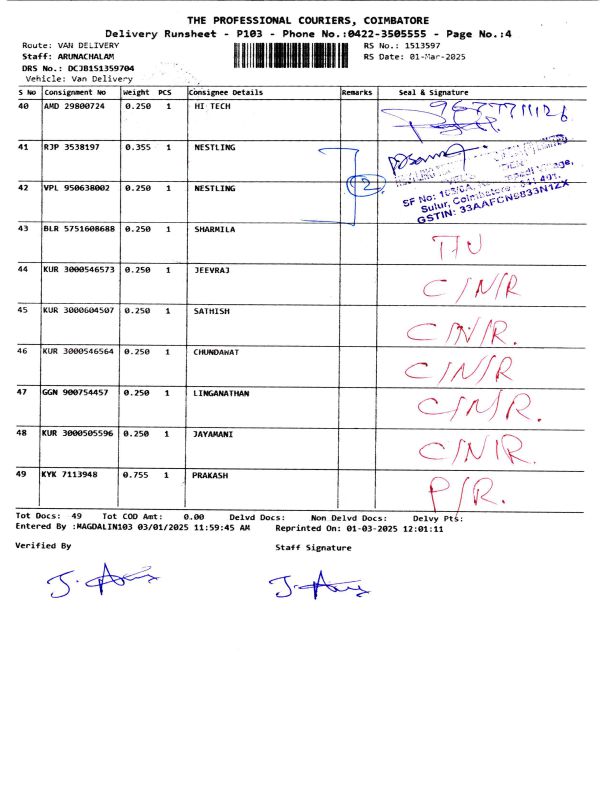 THE PROFESSIONAL COURIERS, COIMBATORE
Delivery Runsheet - P103 - Phone No.:0422-3505555 - Page No.:4
Route: VAN DELIVERY RS No.: 1513597
Staff: ARUNACHALAM RS Date: 01-Mar-2025
DRS No.: DCJB1S1359704
Vehicle: Van Delivery
S No Consignment No Weight PCS Consignee Details Remarks Seal & Signature
40 AMD 29800724 0.250 1 HI TECH
41 RJP 3538197 0.355 1 NESTLING
42 VPL 950638002 0.250 1 NESTLING 2
SF No: 
Sulur, Coimbatore
GSTIN: 33AAFCN6833N1ZX
43 BLR 5751608688 0.250 1 SHARMILA
44 KUR 3000546573 0.250 1 JEEVRAJ C/N/R
45 KUR 3000604507 0.250 1 SATHISH C/N/R.
46 KUR 3000546564 0.250 1 CHUNDAWAT C/N/R
47 GGN 900754457 0.250 1 LINGANATHAN C/N/R.
48 KUR 3000505596 0.250 1 JAYAMANI C/N/R.
49 KYK 7113948 0.755 1 PRAKASH P/R.
Tot Docs: 49 Tot COD Amt: 0.00 Delvd Docs: Non Delvd Docs: Delvy Pts:
Entered By :MAGDALIN103 03/01/2025 11:59:45 AM Reprinted On: 01-03-2025 12:01:11
Verified By Staff Signature